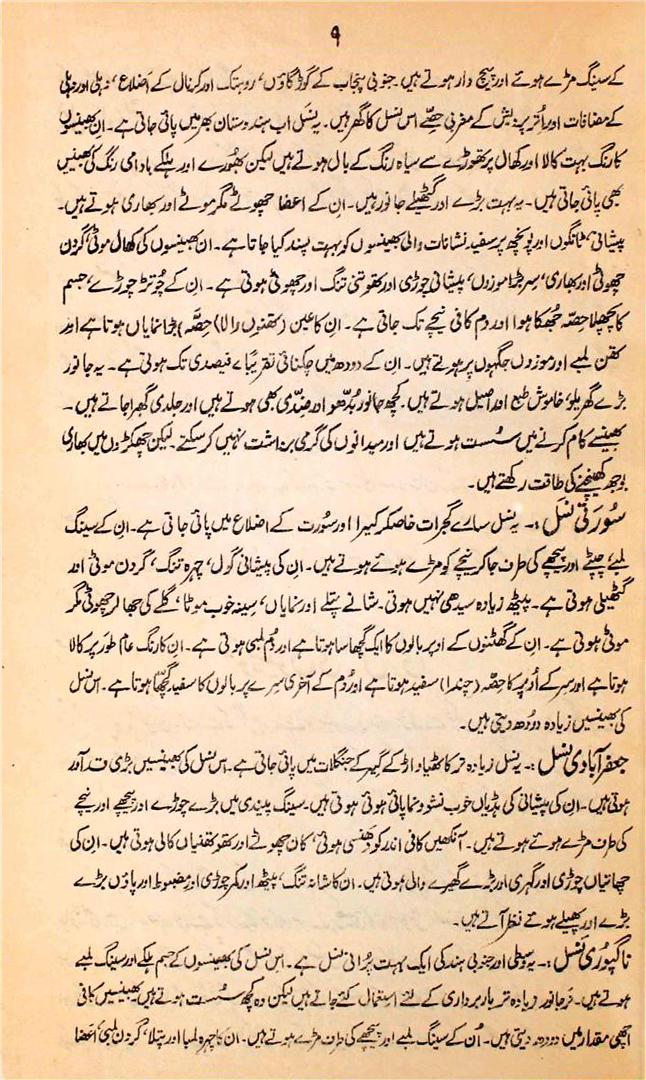 ۹
کے سینگ مڑے ہوئے اور پیچ دار ہوتے ہیں۔ جنوبی پنجاب کے گوڑگاؤں، روہتک اور کرنال کے اضلاع، دہلی اور دہلی
کے مضافات اور اتر پردیش کے مغربی حصّے اس نسل کا گھر ہیں۔ یہ نسل اب ہندوستان بھر میں پائی جاتی ہے۔ ان بھینسوں
کا رنگ بہت کالا اور کھال پر تھوڑے سے سیاہ رنگ کے بال ہوتے ہیں لیکن بھُورے اور ہلکے بادامی رنگ کی بھینسیں
بھی پائی جاتی ہیں۔ یہ بہت بڑے اور گٹھیلے جانور ہیں۔ ان کے اعضا چھوٹے مگر موٹے اور بھاری ہوتے ہیں۔
پیشانی، ٹانگوں اور پونچھ پر سفید نشانات والی بھینسوں کو بہت پسند کیا جاتا ہے۔ ان بھینسوں کی کھال موٹی، گردن
چھوٹی اور بھاری، سر بڑا موزوں، پیشانی چوڑی اور تھوتنی تنگ اور چھوٹی ہوتی ہے۔ ان کے چُوتڑ چوڑے، جسم
کا پچھلا حصّہ جھکا ہوا اور دم کافی نیچے تک جاتی ہے۔ ان کا عین (تھنوں والا) حِصّہ بڑا نمایاں ہوتا ہے اور
تھن لمبے اور موزوں جگہوں پر ہوتے ہیں۔ ان کے دودھ میں چکنائی تقریبًا ۷ فیصدی تک ہوتی ہے۔ یہ جانور
بڑے گھریلو، خاموش طبع اور اصیل ہوتے ہیں۔ کچھ جانور بُدّھو اور ضدّی بھی ہوتے ہیں اور جلدی گھبرا جاتے ہیں۔
بھینسے کام کرنے میں سُست ہوتے ہیں اور میدانوں کی گرمی برداشت نہیں کر سکتے۔ لیکن چھکڑوں میں بھاری
بوجھ کھینچنے کی طاقت رکھتے ہیں۔
سُورتی نسل :۔ یہ نسل سارے گجرات خاصکر کیرا اور سورت کے اضلاع میں پائی جاتی ہے۔ ان کے سینگ
لمبے، چپٹے اور پیچھے کی طرف جا کر نیچے کو مڑے ہوئے ہوتے ہیں۔ ان کی پیشانی گول، چہرہ تنگ، گردن موٹی اور
گٹھیلی ہوتی ہے۔ پیٹھ زیادہ سیدھی نہیں ہوتی۔ شانے پتلے اور نمایاں، سینہ خوب موٹا، گلے کی جھالر چھوٹی مگر
موٹی ہوتی ہے۔ ان کے گھٹنوں کے اوپر بالوں کا ایک گچھا سا ہوتا ہے اور دُم لمبی ہوتی ہے۔ ان کا رنگ عام طور پر کالا
ہوتا ہے اور سر کے اُوپر کا حصّہ (چندا) سفید ہوتا ہے اور دُم کے آخری سرے پر بالوں کا سفید گچھّا ہوتا ہے۔ اس نسل
کی بھینسیں زیادہ دودھ دیتی ہیں۔
جعفرآبادی نسل :۔ یہ نسل زیادہ تر کاٹھیاواڑ کے گیر کے جنگلات میں پائی جاتی ہے۔ اس نسل کی بھینسیں بڑی قد آور
ہوتی ہیں۔ ان کی پیشانی کی ہڈیاں خوب نشو و نما پائی ہوئی ہوتی ہیں۔ سینگ پیندی میں بڑے چوڑے اور پیچھے اور نیچے
کی طرف مڑے ہوئے ہوتے ہیں۔ آنکھیں کافی اندر کو دھنسی ہوئی، کان چھوٹے اور تھوتھنیاں کالی ہوتی ہیں۔ ان کی
چھاتیاں چوڑی اور گہری اور بڑے گھیرے والی ہوتی ہیں۔ ان کا شانہ تنگ، پیٹھ اور کمر چوڑی اور مضبوط اور پاؤں بڑے
بڑے اور پھیلے ہوئے نظر آتے ہیں۔
ناگپوری نسل :۔ یہ وسطی اور جنوبی ہند کی ایک بہت پُرانی نسل ہے۔ اس نسل کی بھینسوں کے جسم ہلکے اور سینگ لمبے
ہوتے ہیں۔ نر جانور زیادہ تر باربرداری کے لئے استعمال کئے جاتے ہیں لیکن وہ کچھ سُست ہوتے ہیں۔ بھینسیں کافی
اچھی مقدار میں دودھ دیتی ہیں۔ اُن کے سینگ لمبے اور پیچھے کی طرف مڑے ہوتے ہیں۔ ان کا چہرہ لمبا اور پتلا، گردن لمبی، اعضا